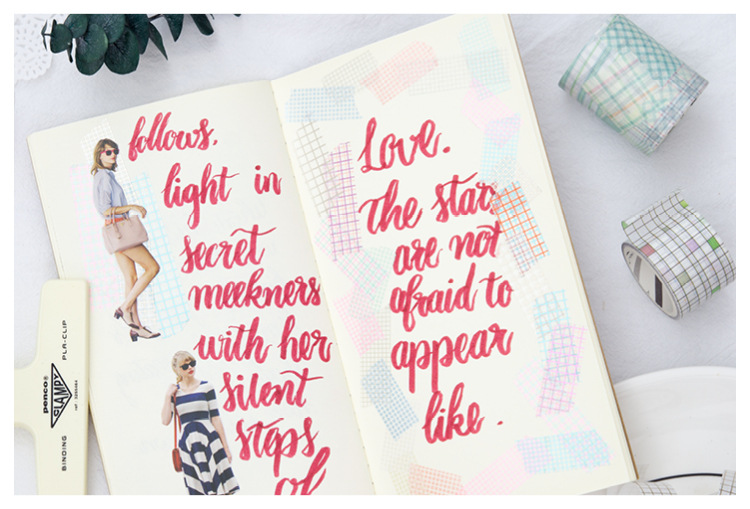 follows,
light in
secret
meekners
with her
silent
steps
of
Love.
The star
are not
afraid to
appear
like.
penco®
SLAMPY
PLA-CLIP
BINDING